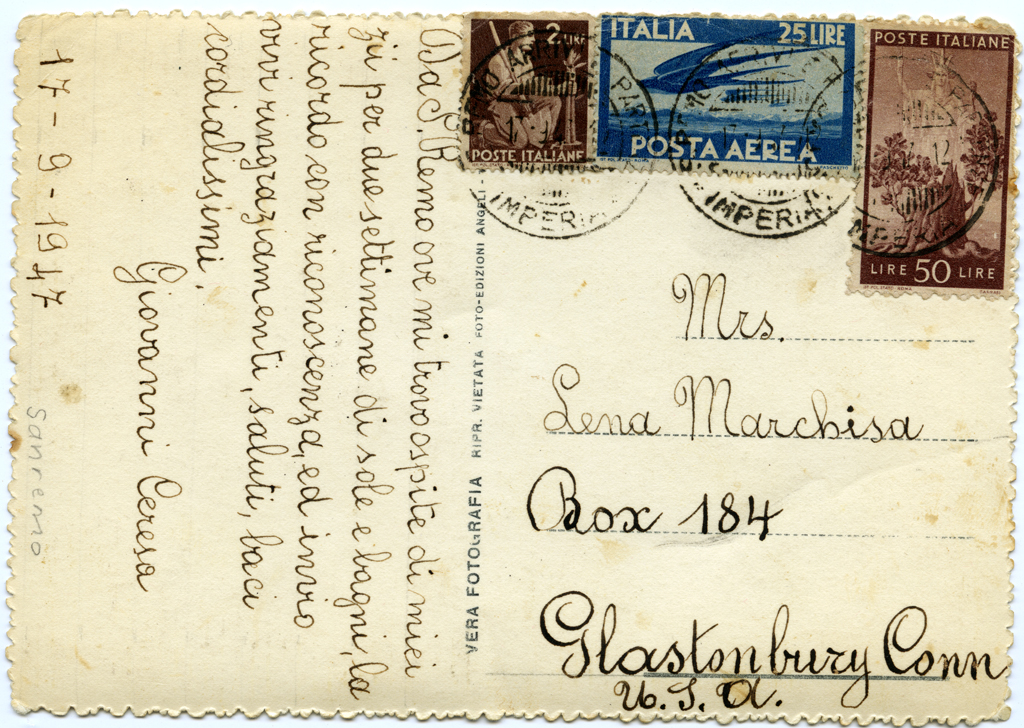 17-9-1947
Da S. Remo ove mi trovo ospite di miei
zi per due settimane di sole e bagni, la
ricordo con riconoscenza, ed invio
vivi ringraziamenti, saluti, baci
cordialissimi.
Giovanni Ceresa
Sanremo
VERA FOTOGRAFIA RIPR. VIETATA FOTO-EDIZIONI ANGEL
2 LIRE
POSTE ITALIANE
ITALIA 25 LIRE
POSTA AEREA
POSTE ITALIANE
LIRE 50 LIRE
IMPERIA
IMPERIA
Mrs.
Lena Marchisa
Box 184
Glastonbury Conn
U.S.A.